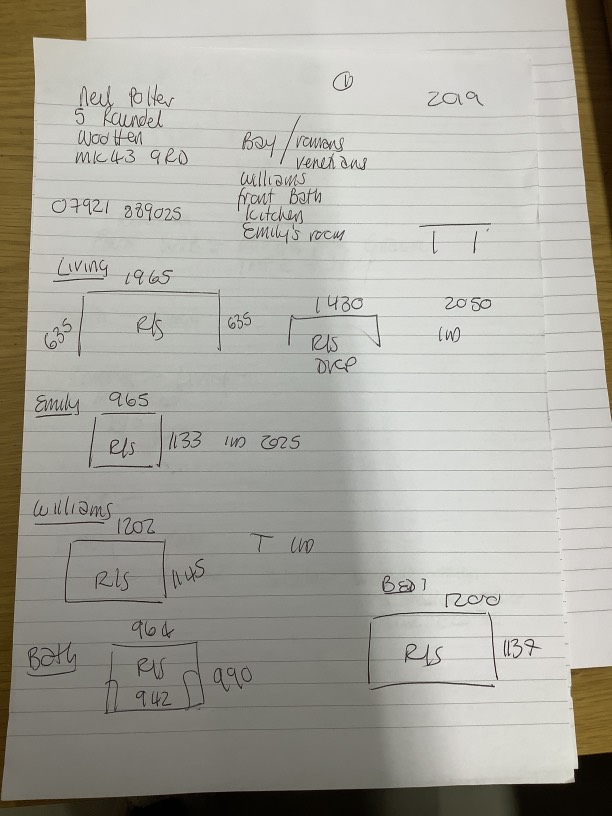 ①
2019
Neil Potter
5 Raundel
Wootten
MK43 9RD
07921 889025
Bay / romans
venetians
Williams
front Bath
kitchen
Emily's room
Living
1965
635 R/S 635
1430 2050
R/S
Emily
965
R/S 1133 2025
Williams
1202
T
R/S 1145
Bed 1
1200
R/S 1137
Bath
964
R/S
942
990